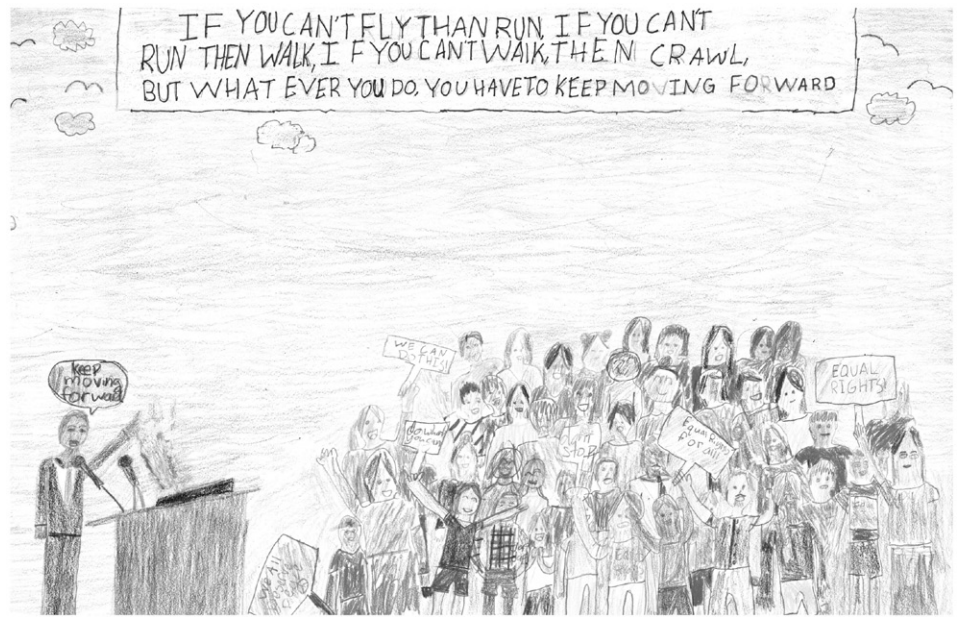 IF YOU CAN'T FLY THAN RUN, IF YOU CAN'T
RUN THEN WALK, IF YOU CAN'T WALK, THEN CRAWL,
BUT WHAT EVER YOU DO, YOU HAVE TO KEEP MOVING FORWARD
keep
moving
forward
WE CAN
DO THIS!
EQUAL
RIGHTS!
do what
you can
STOP
Equal Rights
For all!